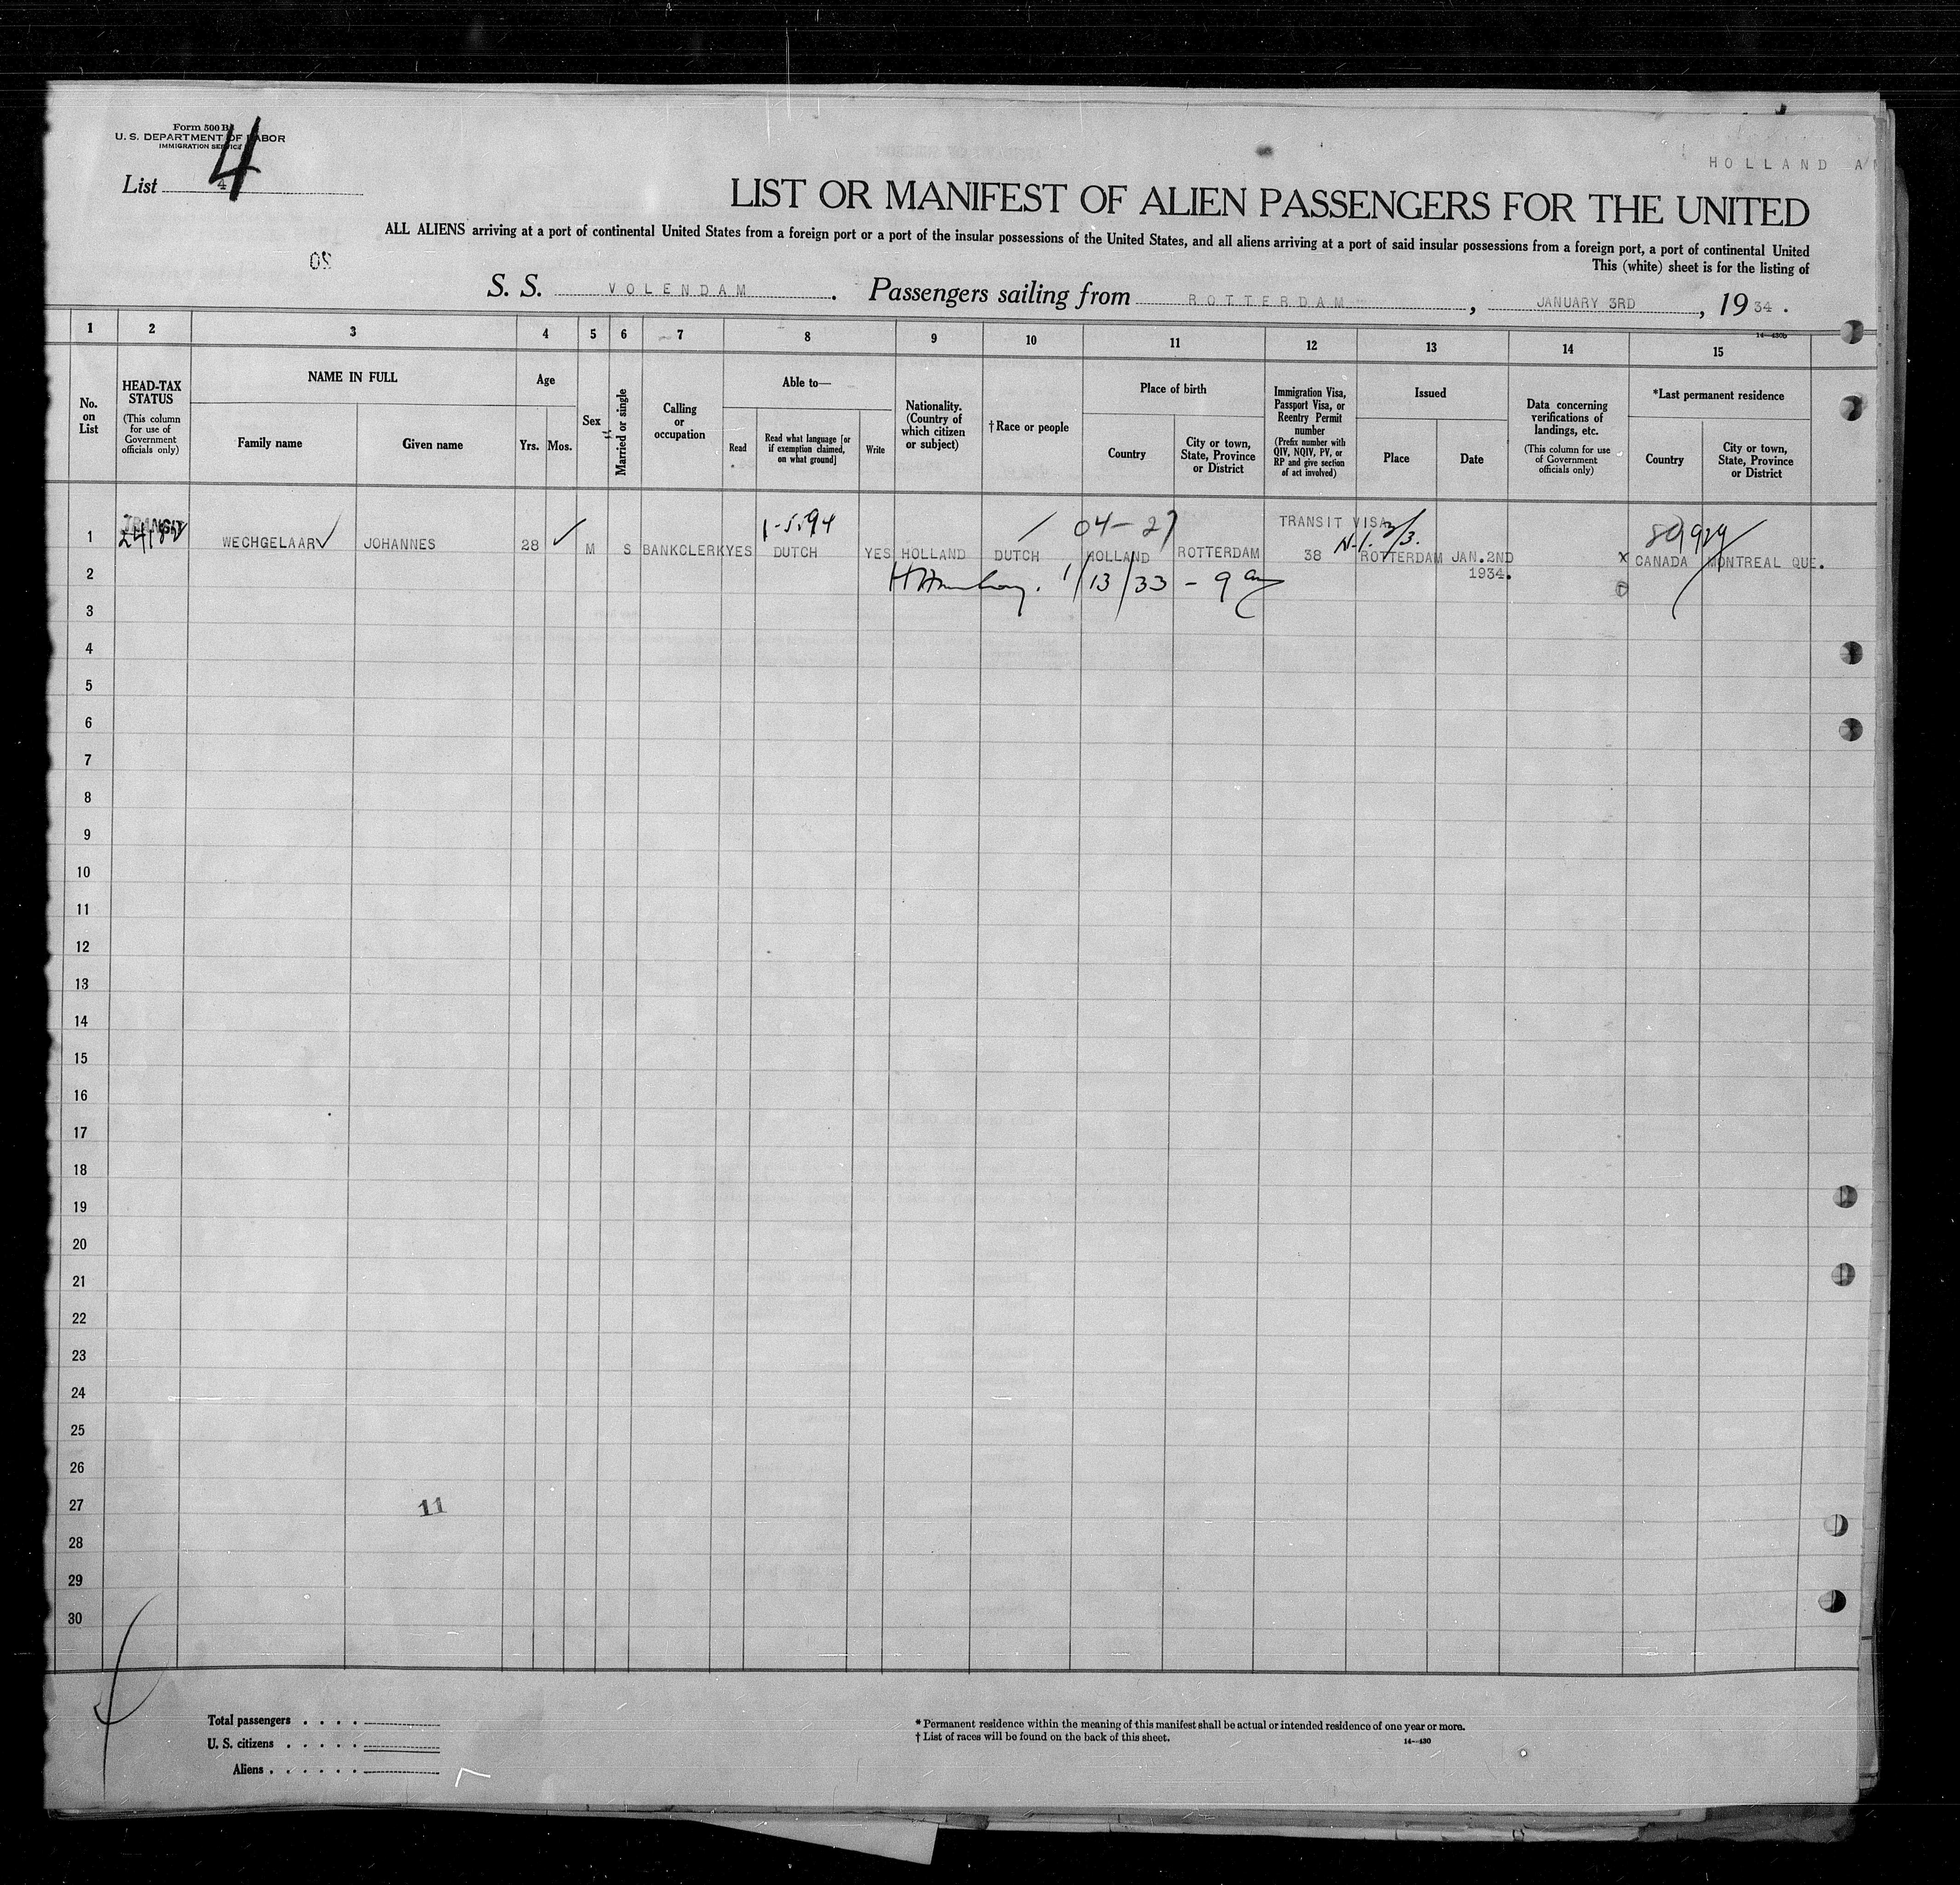 Form 500 B
U. S. DEPARTMENT OF LABOR
IMMIGRATION SERVICE
List 4
4
HOLLAND A
LIST OR MANIFEST OF ALIEN PASSENGERS FOR THE UNITED
ALL ALIENS arriving at a port of continental United States from a foreign port or a port of the insular possessions of the United States, and all aliens arriving at a port of said insular possessions from a foreign port, a port of continental United
This (white) sheet is for the listing of
S. S. VOLENDAM. Passengers sailing from ROTTERDAM, JANUARY 3RD, 1934.
14—430b
1 2 3 4 5 6 7 8 9 10 11 12 13 14 15
No. on List
HEAD-TAX STATUS
(This column for use of Government officials only)
NAME IN FULL
Family name
Given name
Age
Yrs.
Mos.
Sex
Married or single
Calling or occupation
Able to—
Read
Read what language [or if exemption claimed, on what ground]
Write
Nationality. (Country of which citizen or subject)
†Race or people
Place of birth
Country
City or town, State, Province or District
Immigration Visa, Passport Visa, or Reentry Permit number
(Prefix number with QIV, NQIV, PV, or RP and give section of act involved)
Issued
Place
Date
Data concerning verifications of landings, etc.
(This column for use of Government officials only)
*Last permanent residence
Country
City or town, State, Province or District
TRANSIT 1-5-94 04-27 TRANSIT VISA
1 WECHGELAAR JOHANNES 28 M S BANKCLERK YES DUTCH YES HOLLAND DUTCH HOLLAND ROTTERDAM 38 ROTTERDAM JAN. 2ND x CANADA MONTREAL QUE.
1934.
2 1/13/33 - 9
3
4
5
6
7
8
9
10
11
12
13
14
15
16
17
18
19
20
21
22
23
24
25
26
27
11
28
29
30
Total passengers . . . .
U. S. citizens . . . . .
Aliens . . . . . .
* Permanent residence within the meaning of this manifest shall be actual or intended residence of one year or more.
† List of races will be found on the back of this sheet.
14—430